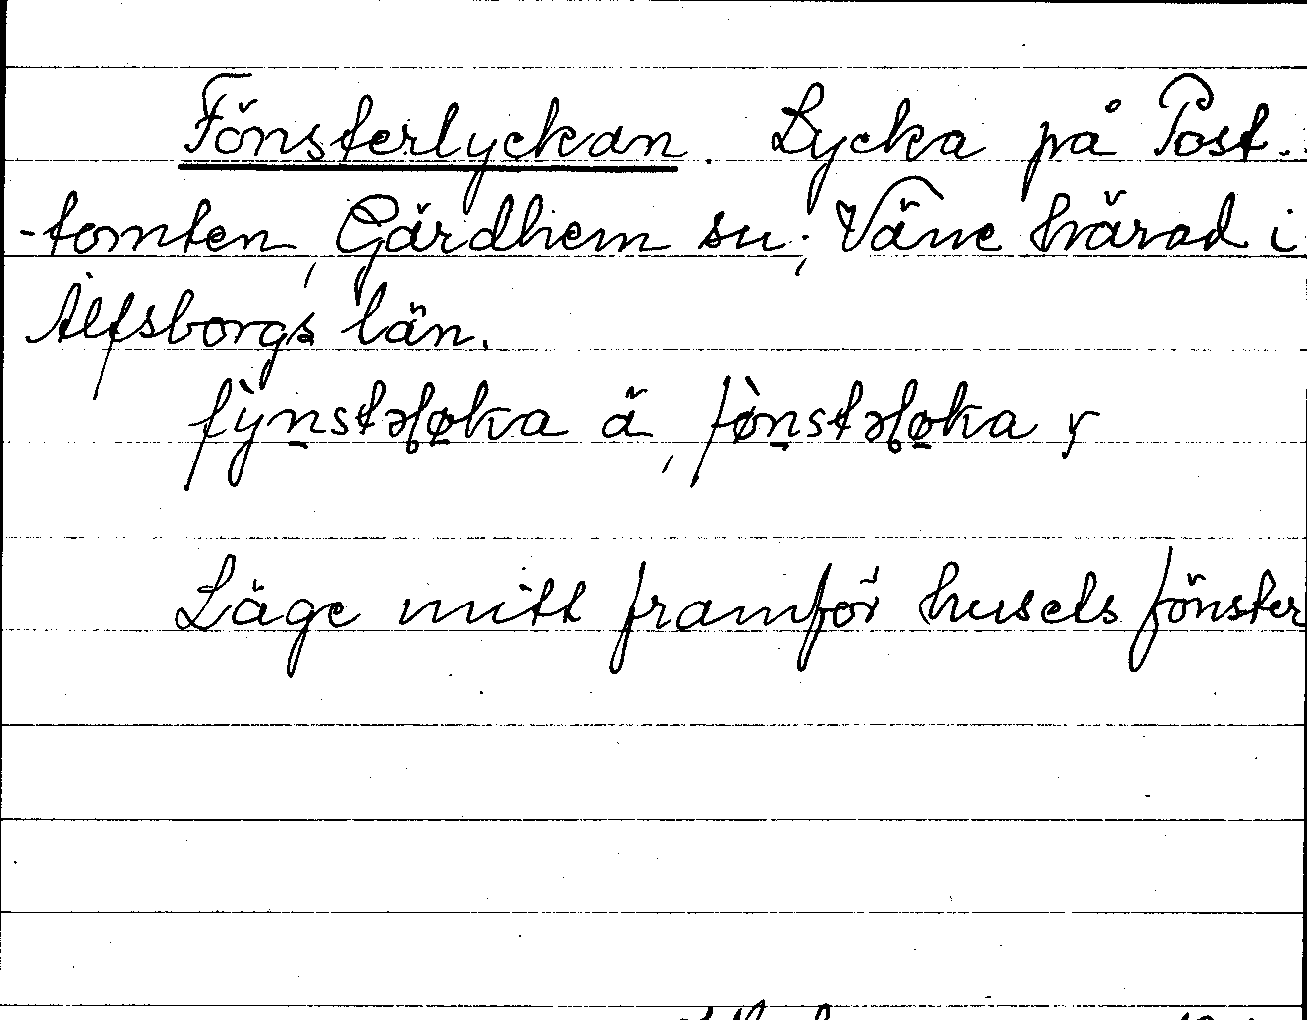 Fönsterlyckan. Lycka på Post-
-tomten, Gärdhem sn; Väne härad i
Älfsborgs län.
fỳnstəɭøka ä, fø̀nstəɭøka y
Läge mitt framför husets fönster